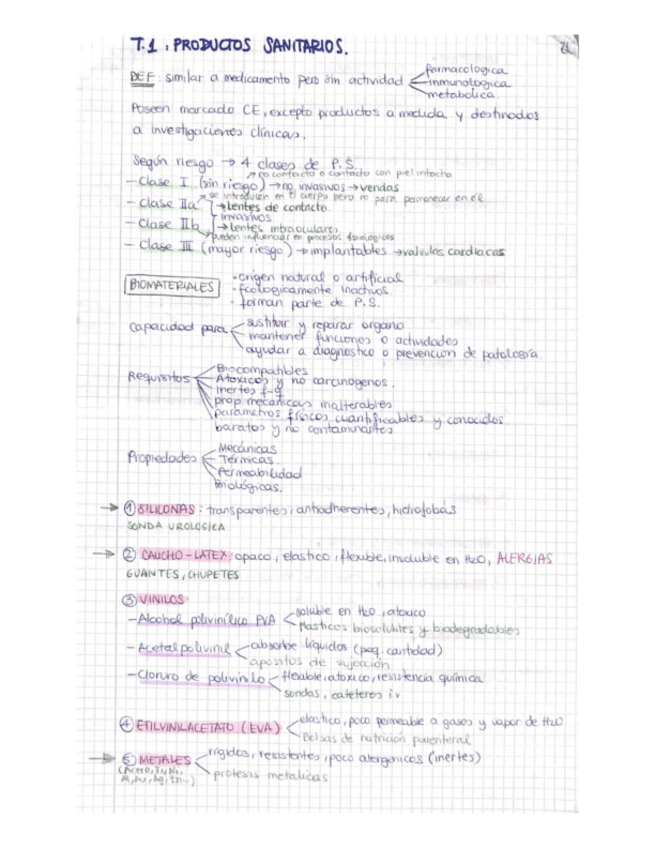 T.1 : PRODUCTOS SANITARIOS.
DEF: similar a medicamento pero sin actividad
farmacologica
inmunologica
metabolica.
Poseen marcado CE, excepto productos a medida y destinados
a investigaciones clínicas.
Según riesgo → 4 clases de P.S.
↗ no contacto o contacto con piel intacta
- Clase I (sin riesgo) → no invasivos → vendas
↗ se introducen en el cuerpo pero no para permanecer en él
- Clase IIa → lentes de contacto.
invasivos
- Clase IIb → lentes intraoculares
pueden influenciar en procesos fisiologicos
- Clase III (mayor riesgo) → implantables → valvulas cardiacas
BIOMATERIALES
· origen natural o artificial
· fcologicamente inactivos.
· forman parte de P.S.
Capacidad para
sustituir y reparar organo
mantener funciones o actividades
ayudar a diagnostico o prevencion de patología.
Requisitos
Biocompatibles
Atoxicos y no carcinogenos.
inertes f-q
prop mecanicas inalterables
parámetros físicos cuantificables y conocidos
baratos y no contaminantes
Propiedades
Mecánicas
Termicas.
Permeabilidad
Biológicas.
→ ① SILICONAS : transparentes, antiadherentes, hidrofobas
SONDA UROLOGICA
→ ② CAUCHO-LATEX: opaco, elastico, flexible, insoluble en H2O, ALERGIAS
GUANTES, CHUPETES
③ VINILOS
- Alcohol polivinílico PVA
soluble en H2O, atoxico
Plasticos biosolubles y biodegradables
- Acetal polivinil
absorbe líquidos (peq. cantidad)
apositos de sujección
- Cloruro de polivinilo
flexible, atoxico, resistencia química
sondas, cateteres iv
④ ETILVINILACETATO (EVA)
elastico, poco permeable a gases y vapor de H2O
Bolsas de nutrición parenteral
→ ⑤ METALES
rígidos, resistentes, poco alergenicos (inertes)
(Acero, Ti, Ni,
Al, Au, Ag, Zn..)
protesis metalicas